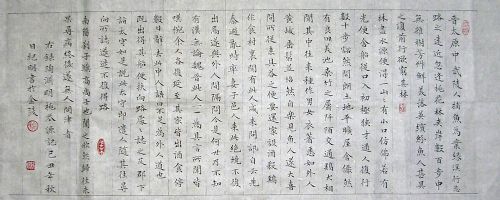 晉太原中武陵人捕魚為業緣溪行忘
路之遠近忽逢桃花林夾岸數百步中
無雜樹芳草鮮美落英繽紛漁人甚異
之復前行欲窮其林
林盡水源便得一山山有小口仿佛若有
光便舍船從口入初極狹才通人復行
數十步豁然開朗土地平曠屋舍儼然
有良田美池桑竹之屬阡陌交通雞犬相
聞其中往來種作男女衣著悉如外人
黃髮垂髫並怡然自樂見漁人大
問所從來具答之便要還家設酒殺雞
作食村中聞有此人咸來問訊自云先
世避秦時亂率妻子邑人來此絕境不復
出焉遂與外人間隔問今是何世乃不知
有漢無論魏晉此人一一為具言所聞皆
嘆惋餘人各復延至其家皆出酒食停
數日辭去此中人語云不足為外人道也
既出得其船便扶向路處處誌之及郡下
詣太守說如此太守即遣人隨其往尋
向所誌遂迷不復得路
南陽劉子驥高尚士也聞之欣然規往未
果尋病終後遂無人問津者
右錄陶淵明桃花源記己丑年秋
日紀明書於金陵